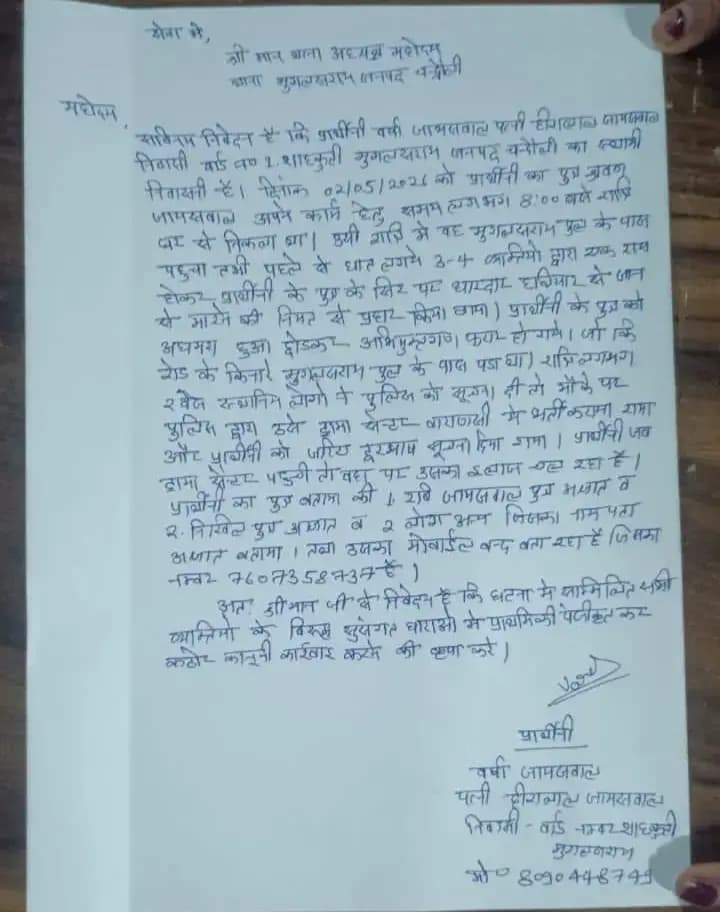 सेवा में,
श्री मान थाना अध्यक्ष महोदय
थाना मुगलसराय जनपद चन्दौली
महोदय,
सविनय निवेदन है कि प्रार्थीनी वर्षा जायसवाल पत्नी हीरालाल जायसवाल
निवासी वार्ड न० 1 शाहकुटी मुगलसराय जनपद चन्दौली का स्थायी
निवासनी है। दिनांक 02/05/2026 को प्रार्थीनी का पुत्र
जायसवाल अपने कार्य हेतु समय लगभग 8:00 बजे रात्रि
घर से निकला था। उसी रात्रि में वह मुगलसराय पुल के पास
पहुचा तभी पहले से घात लगाये 3-4 व्यक्तियो द्वारा एक राय
होकर प्रार्थीनी के पुत्र के सिर पर धारदार हथियार से जान
से मारने की नियत से प्रहार किया गया। प्रार्थीनी के पुत्र को
अधमरा हुआ छोडकर अभियुक्तगण फरार हो गये। जो कि
रोड के किनारे मुगलसराय पुल के पास पडा था। रात्रि लगभग
2 बजे स्थानिय लोगो ने पुलिस को सूचना दी तो मौके पर
पुलिस द्वारा उसे ट्रामा सेन्टर वाराणसी में भर्ती कराया गया
और प्रार्थीनी को जरिए दूरभाष सूचना दिया गया। प्रार्थीनी जब
ट्रामा सेन्टर पहुची तो वहा पर उसका इलाज चल रहा है।
प्रार्थीनी का पुत्र बताया की 1. रवि जायसवाल पुत्र अज्ञात व
2. निखिल पुत्र अज्ञात व 2 लोग अन्य जिसका नाम पता
अज्ञात बताया। तथा उसका मोबाईल बन्द बता रहा है जिसका
नम्बर 7607358737 है।
अतः श्रीमान जी से निवेदन है कि घटना मे सम्मिलित सभी
व्यक्तियो के विरुद्ध सुसंगत धाराओ मे प्राथमिकी पंजीकृत कर
कठोर कानूनी कार्रवार करने की कृपा करे।
प्रार्थीनी
वर्षा जायसवाल
पत्नी हीरालाल जायसवाल
निवासी - वार्ड नम्बर शाहकुटी
मुगलसराय
मो० 8090448749